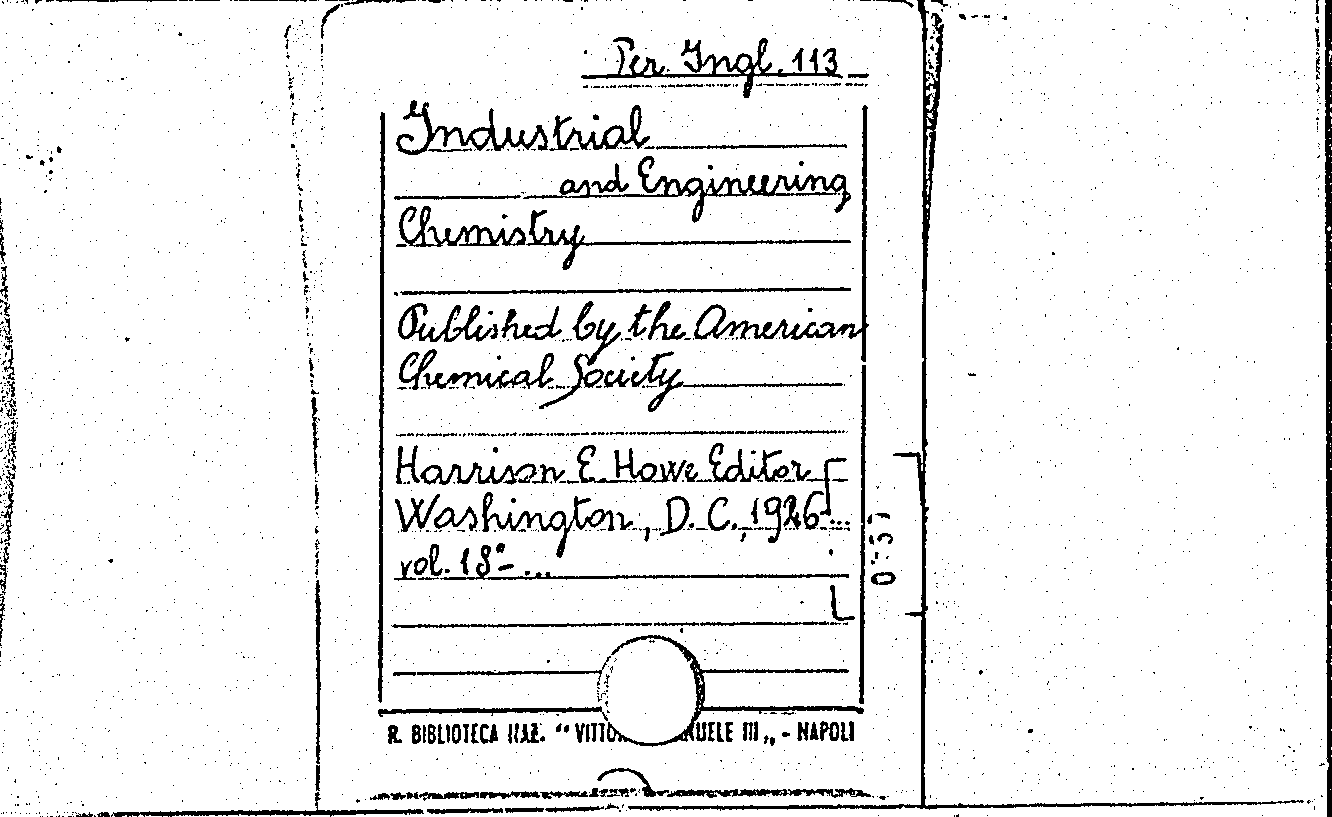 Per. Ingl. 113
Industrial
and Engineering
Chemistry
Published by the American
Chemical Society
Harrison E. Howe Editor
Washington, D. C., 1926-...
vol. 18°- ...
R. BIBLIOTECA NAZ. “ VITTO NUELE III „ - NAPOLI